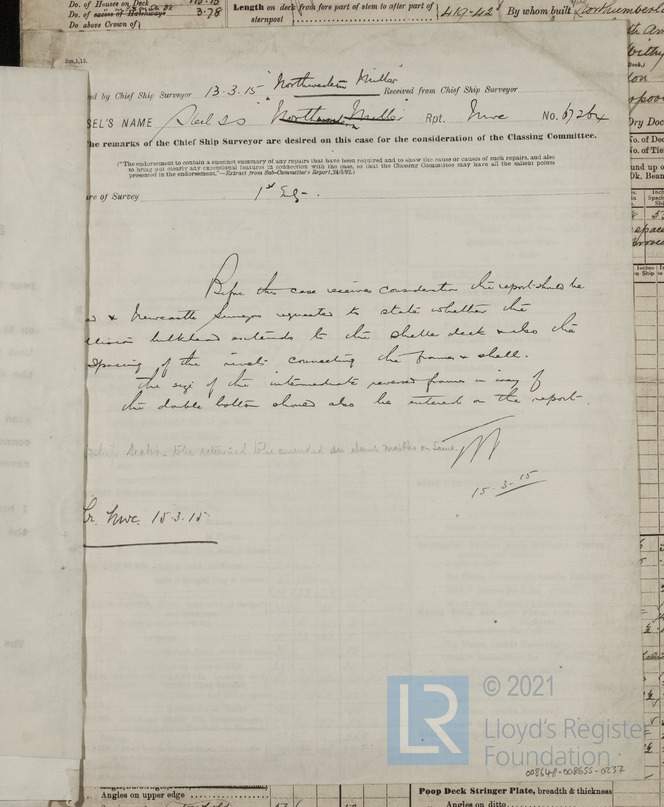 Do. of Houses on Deck 115.15
Do. of excess of Hatchways 3.78
Do above Crown of
Length on deck from fore part of stem to after part of sternpost 419-42 By whom built Northumberla
Sur.1,15.
ed by Chief Ship Surveyor 13.3.15 "Northwestern Miller" Received from Chief Ship Surveyor
SEL'S NAME Steel SS Miller" Rpt. Nwc No. 67264
he remarks of the Chief Ship Surveyor are desired on this case for the consideration of the Classing Committee.
("The endorsement to contain a succinct summary of any repairs that have been required and to show the cause or causes of such repairs, and also
to bring out clearly any exceptional features in connection with the case, so that the Classing Committee may have all the salient points
presented in the endorsement."—Extract from Sub-Committee's Report, 24/5/92.)
re of Survey 1st
Before this case receives consideration the report should be
& Newcastle Surveyors requested to state whether the
llision bulkhead extends to the shelter deck & also the
spacing of the rivets connecting the frames & shell.
The size of the intermediate reversed frames in way of
the double bottom should also be entered on the report.
to be returned to be amended on same
15-3-15
Nwc. 15.3.15
© 2021
LR
Lloyd's Register
Foundation
008648-008655-0237
Angles on upper edge
Poop Deck Stringer Plate, breadth & thickness
Angles on ditto